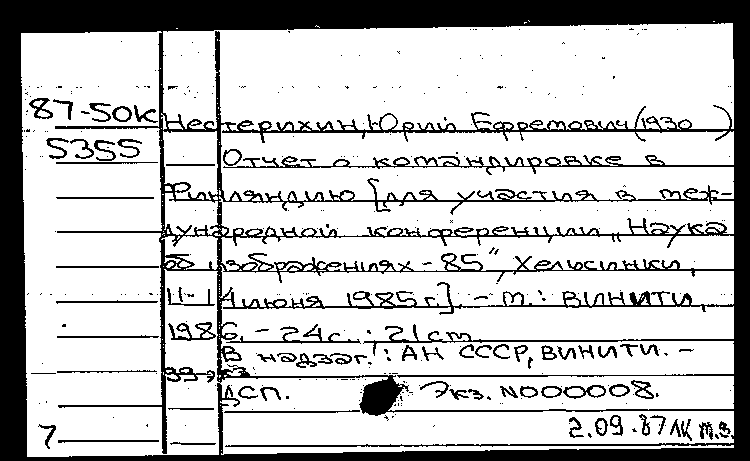 87-50к Нестерихин, Юрий Ефремович (1930 )
5355 Отчет о командировке в
Финляндию [для участия в меж-
дународной конференции „Наука
об изображениях - 85”, Хельсинки,
11-14 июня 1985 г.]. - М.: ВИНИТИ,
1986. - 24 с.; 21 см.
В надзаг.: АН СССР, ВИНИТИ. -
ДСП. Экз. N000008.
7 2.09.87